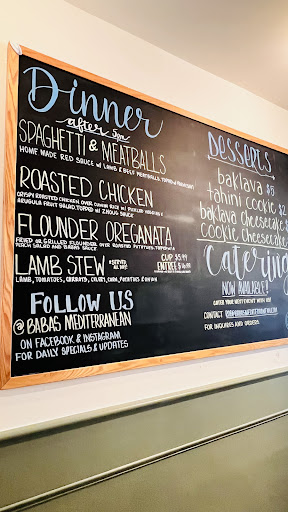 Dinner
after 5pm
SPAGHETTI & MEATBALLS
HOME MADE RED SAUCE W/ LAMB & BEEF MEATBALLS, TOPPED W/ PARMESAN
ROASTED CHICKEN
CRISPY ROASTED CHICKEN OVER RICE W/
ARUGULA FRUIT SALAD. TOPPED W/ ZHOUG SAUCE
FLOUNDER OREGANATA
FRIED OR GRILLED FLOUNDER OVER ROASTED POTATOES. TOPPED W/
SALAD AND SAUCE
LAMB STEW *SERVED ALL DAY
CUP $5.99
ENTREE
LAMB, TOMATOES, CARROTS, CELERY, CORN, POTATOES & ONIONS
FOLLOW US
@BABAS MEDITERRANEAN
ON FACEBOOK & INSTAGRAM
FOR DAILY SPECIALS & UPDATES
DESSERTS
baklava $5
tahini cookie $2
baklava cheesecake $
cookie cheesecake
Catering
NOW AVAILABLE!
CATER YOUR NEXT EVENT WITH US!
CONTACT
FOR INQUIRIES AND ORDERS